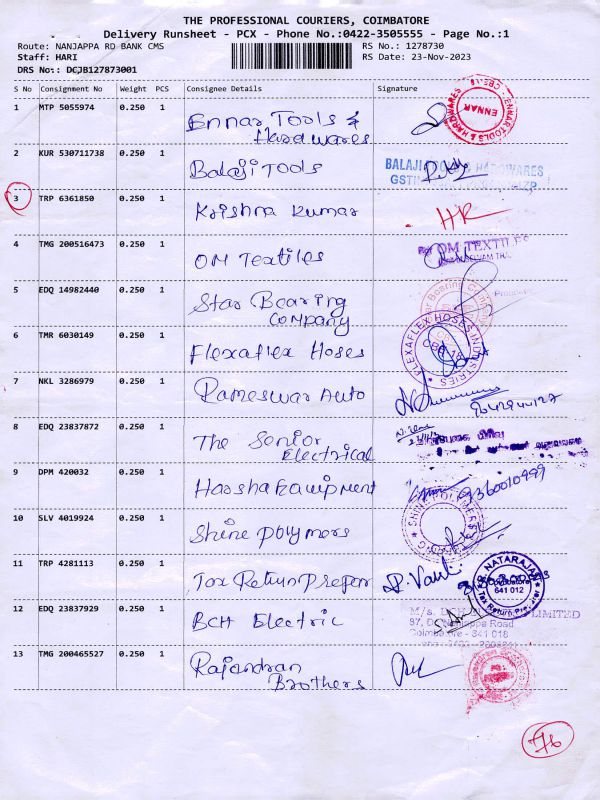 THE PROFESSIONAL COURIERS, COIMBATORE
Delivery Runsheet - PCX - Phone No.:0422-3505555 - Page No.:1
Route: NANJAPPA RD BANK CMS
RS No.: 1278730
Staff: HARI
RS Date: 23-Nov-2023
DRS No.: DCJB127873001
S No Consignment No Weight PCS Consignee Details Signature
1 MTP 5055974 0.250 1 Ennar Tools & Hardwares
ENNAR TOOLS & HARDWARES
ENNAR
2 KUR 530711738 0.250 1 Balaji Tools
BALAJI HARDWARES
GSTIN
3 TRP 6361850 0.250 1 Krishna Kumar
HR
4 TMG 200516473 0.250 1 OM Textiles
OM TEXTILES
5 EDQ 14982440 0.250 1 Star Bearing Company
Bearing Company
6 TMR 6030149 0.250 1 Flexaflex Hoses
FLEXAFLEX HOSES INDUSTRIES
CBE 18
7 NKL 3286979 0.250 1 Rameswar Auto
8 EDQ 23837872 0.250 1 The Senior Electrical
9 DPM 420032 0.250 1 Harsha Equipment
9360010999
10 SLV 4019924 0.250 1 Shine Polymers
SHINE POLYMERS
11 TRP 4281113 0.250 1 Tax Return Prepar
NATARAJAN
Coimbatore
641 012
Tax Return Preparer
12 EDQ 23837929 0.250 1 BCH Electric
M/s. LIMITED
97, Dr. Nanjappa Road
Coimbatore - 641 018
13 TMG 200465527 0.250 1 Rajandran Brothers